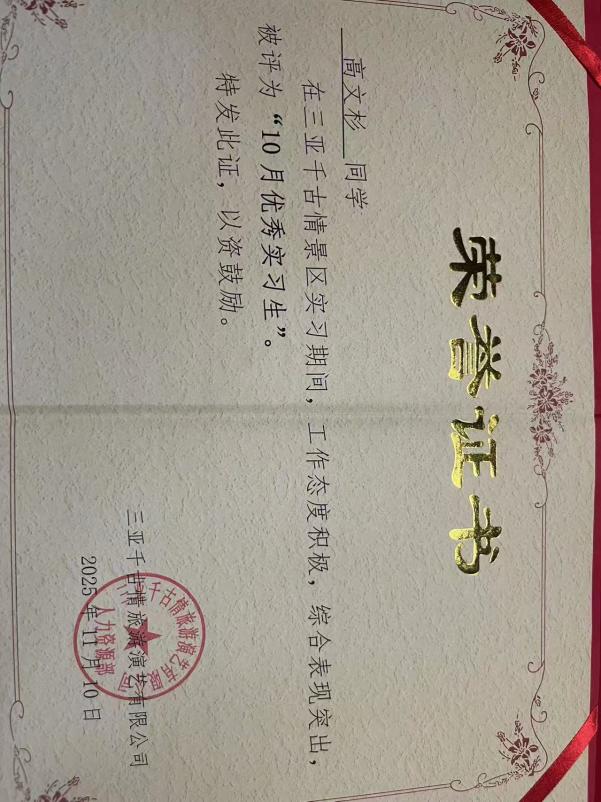 荣誉证书
高文杉 同学
在三亚千古情景区实习期间，工作态度积极，综合表现突出，
被评为“10月优秀实习生”。
特发此证，以资鼓励。
三亚千古情旅游演艺有限公司
2025年11月10日
人力资源部